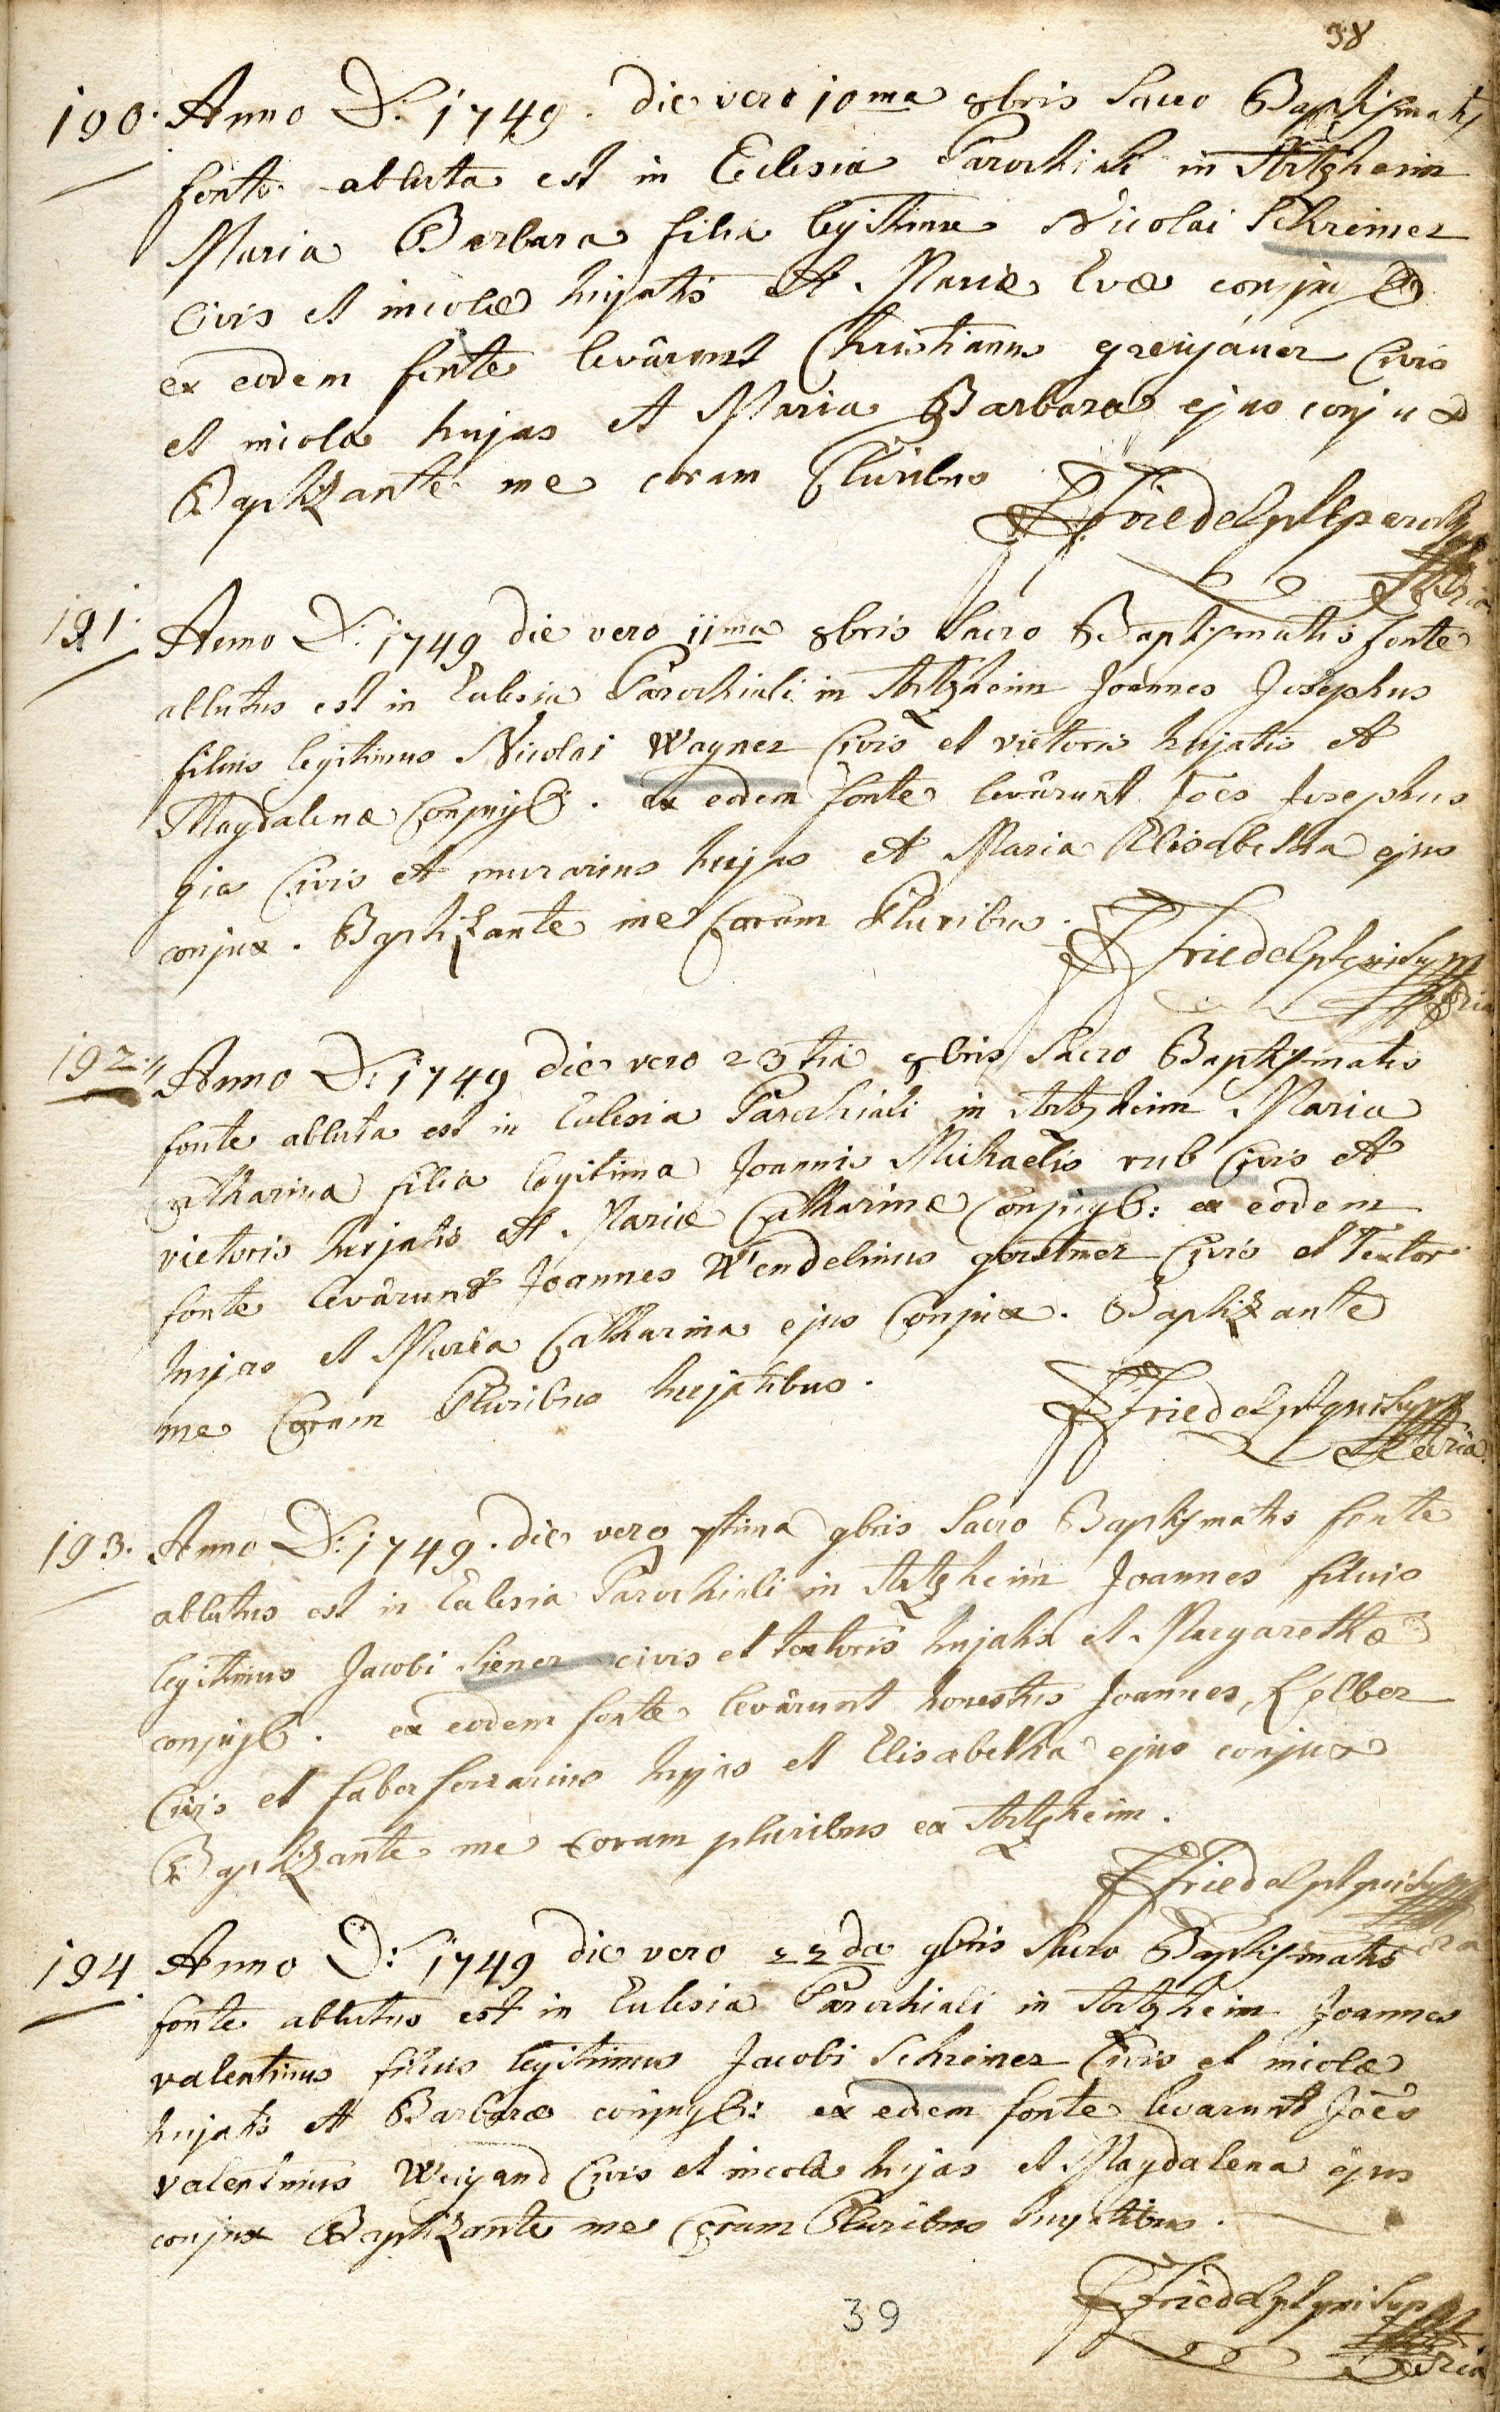 38
190. Anno D: 1749. die vero 10ma 8bris Sacro Baptismatis
fonte abluta est in Eclesia Parochiali in Artzheim
Maria Barbara filia legitima Nicolai Schreiner
Civis et incolæ hujatis et Mariæ Evæ conjug
ex eodem fonte levârunt Christianus Civis
et incola hujas et Maria Barbara ejus conjux
Baptizante me coram Pluribus
Friedel
191. Anno D: 1749 die vero 11ma 8bris Sacro Baptismatis fonte
ablutus est in Eclesia Parochiali in Artzheim Joannes Josephus
filius legitimus Nicolai Wagner Civis et vietoris hujatis et
Magdalenæ Conjugb. ex eodem fonte levârunt Joes Josephus
gia Civis et murarius hujas et Maria Elisabetha ejus
conjux. Baptizante me Coram Pluribus.
Friedel
192. Anno D: 1749 die vero 23tia 8bris Sacro Baptismatis
fonte abluta est in Eclesia Parochiali in Artzheim Maria
Catharina filia legitima Joannis Michaelis rub Civis et
vietoris hujatis et Mariæ Catharinæ Conjugb: ex eodem
fonte levârunt Joannes Wendelinus gerstner Civis et Textor
hujas et Maria Catharina ejus Conjux. Baptizante
me Coram Pluribus hujatibus.
Friedel
193. Anno D: 1749. die vero 7tima 9bris Sacro Baptismatis fonte
ablutus est in Eclesia Parochiali in Artzheim Joannes filius
legitimus Jacobi Siener civis et textoris hujatis et Margarethæ
conjugb. ex eodem fonte levârunt honestus Joannes
Civis et faber ferrarius hujas et Elisabetha ejus conjux
Baptizante me coram pluribus ex Artzheim.
Friedel
194 Anno D: 1749 die vero 22da 9bris Sacro Baptismatis
fonte ablutus est in Eclesia Parochiali in Artzheim Joannes
valentinus filius legitimus Jacobi Schreiner Civis et incolæ
hujatis et Barbaræ conjugb: ex eodem fonte levarunt Joes
valentinus Weigand Civis et incola hujas et Magdalena ejus
conjux Baptizante me Coram Pluribus hujatibus.
Friedel
39